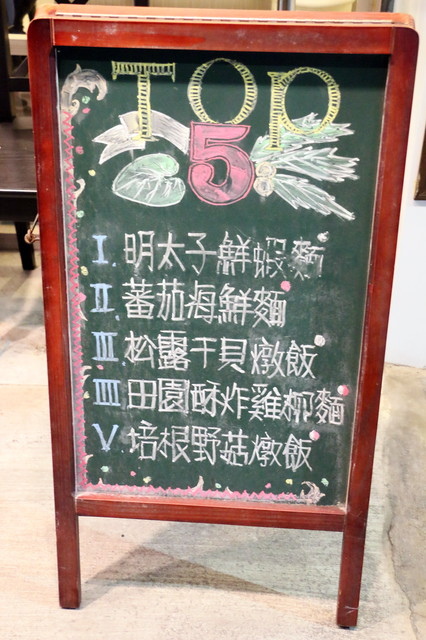 TOP
5
I. 明太子鮮蝦麵
II. 蕃茄海鮮麵
III. 松露干貝燉飯
IIII 田園酥炸雞柳麵
V. 培根野菇燉飯